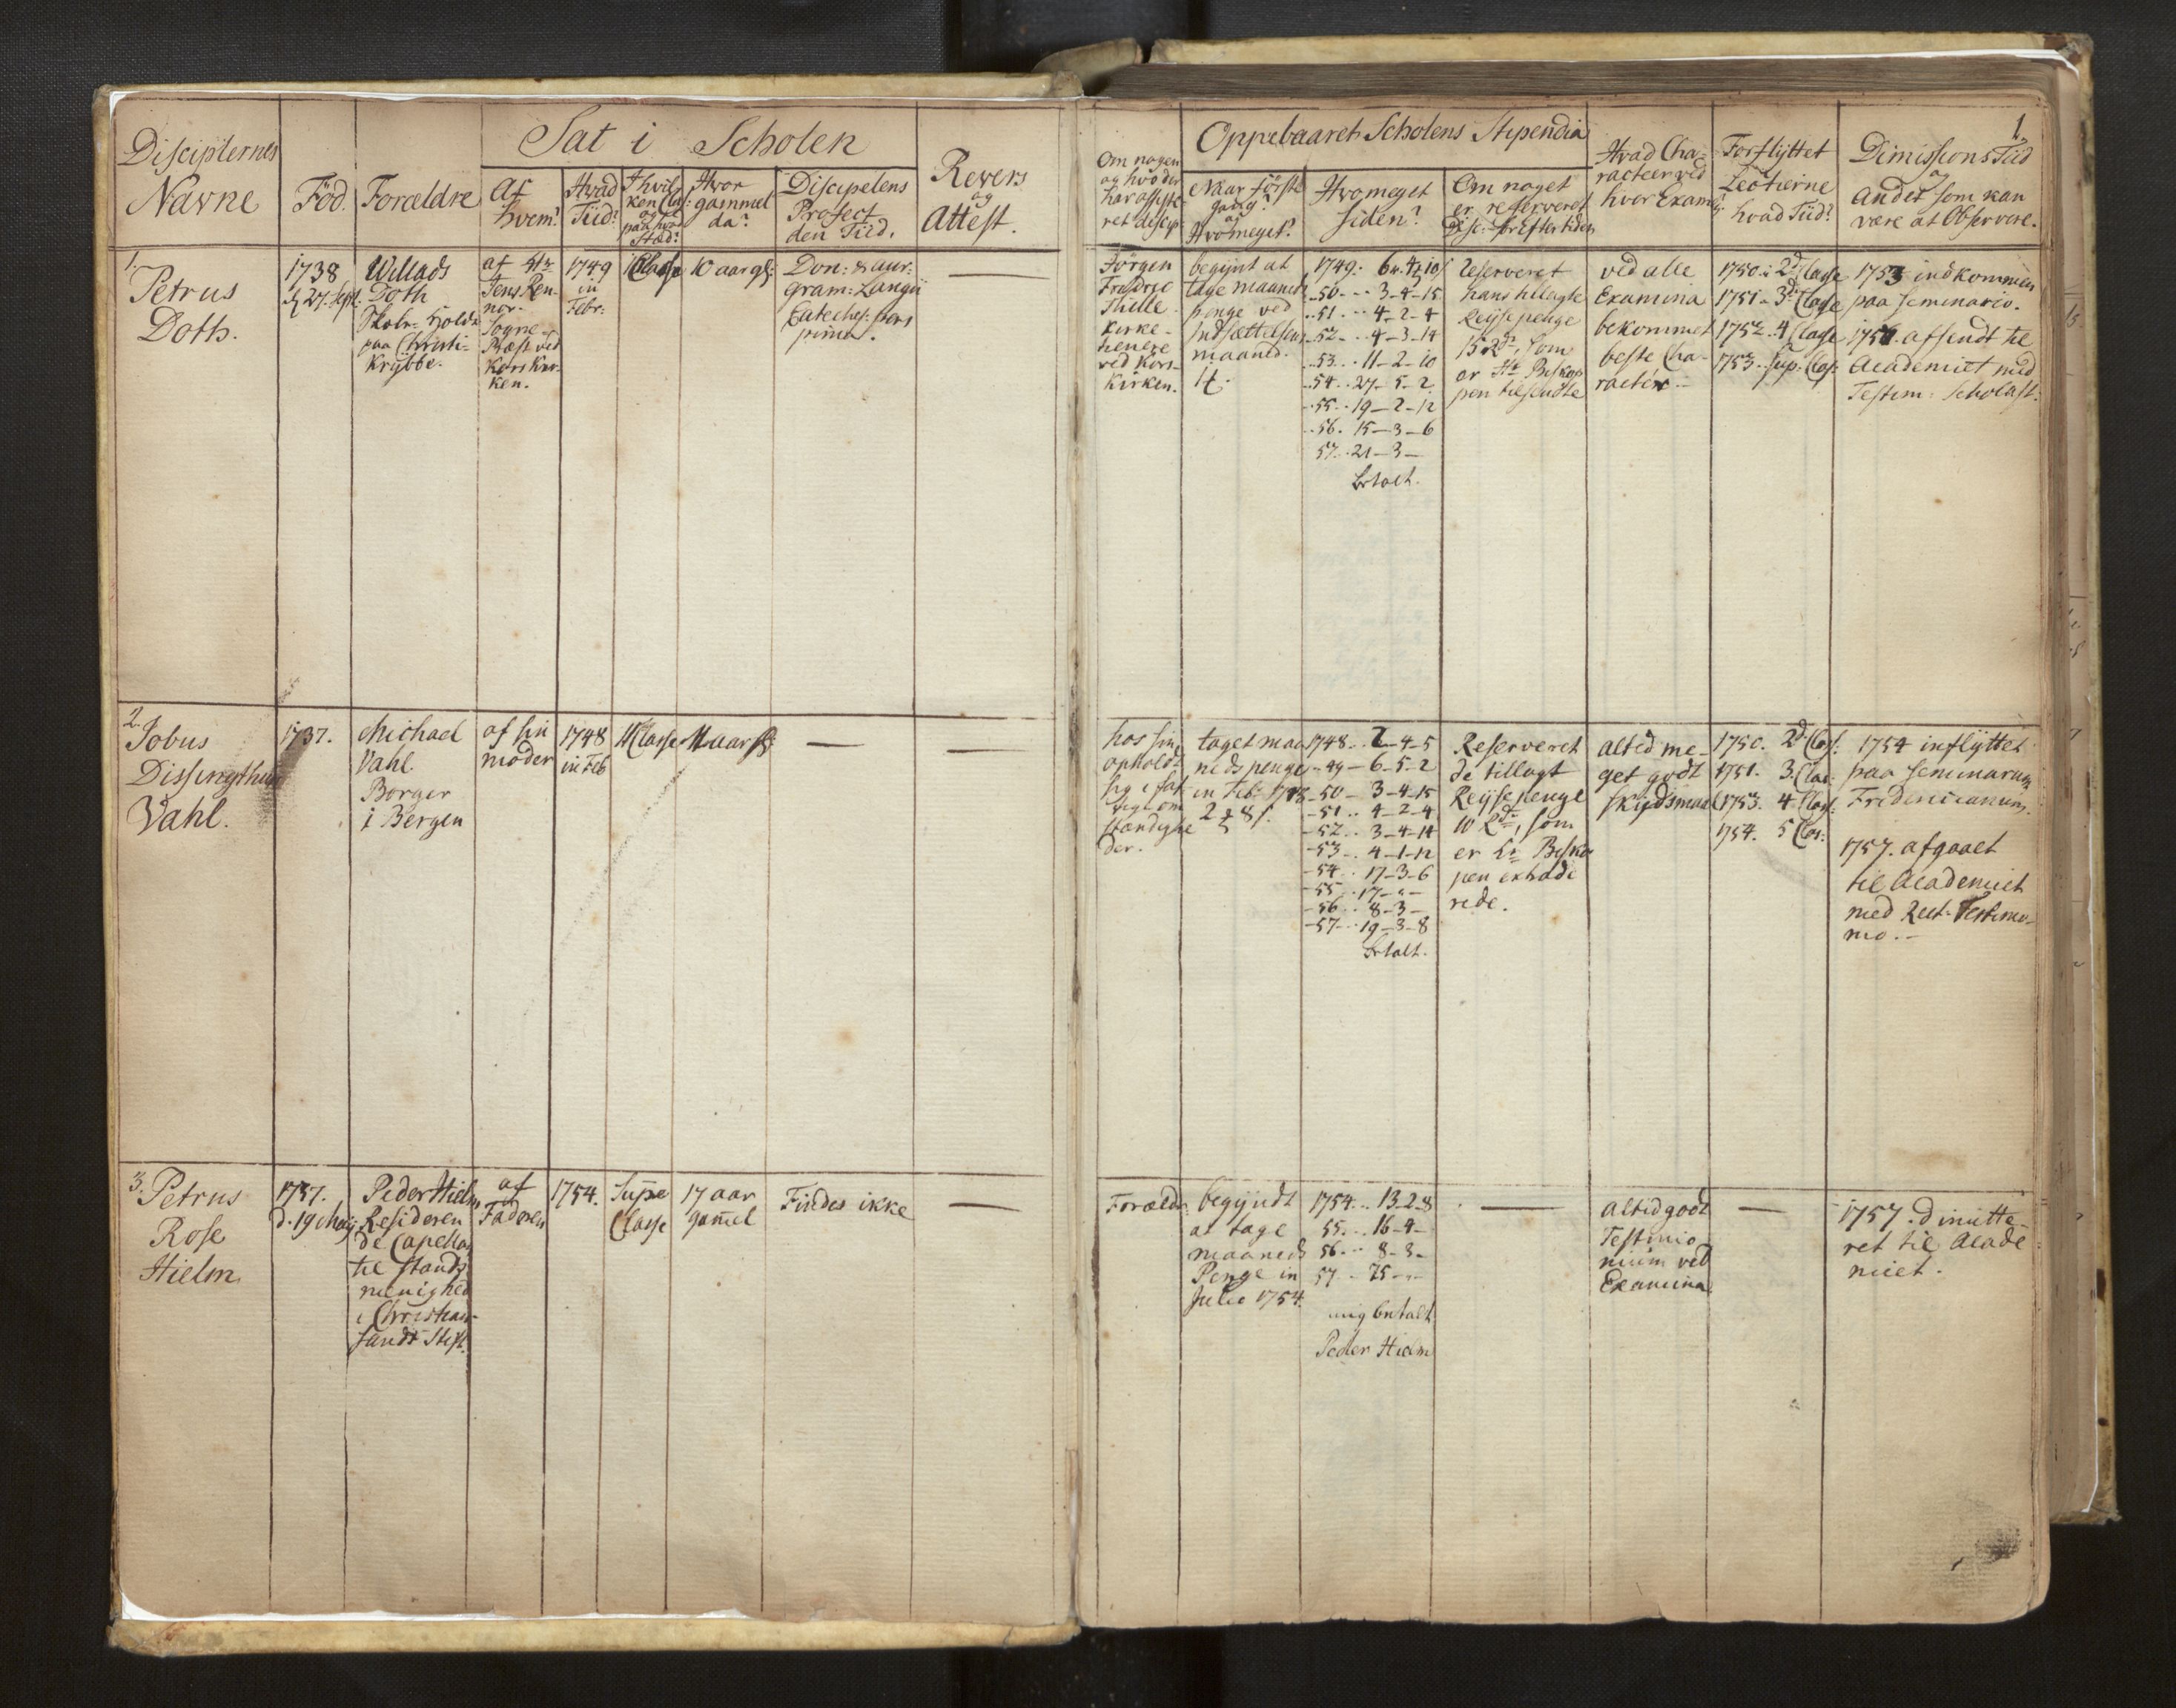 Disciplernes
Navne
Föd.
Forældre
Sat i Scholen
Af
hvem?
Hvad
Tiid?
I hvil-
ken Cla:
og
paa hvad
Stæd?
Hvor
gammel
da?
Discipelens
Profect
den Tiid.
Revers
og
Attest.
1.
Petrus
Doth.
1738
d. 27. Sept.
Willads
Doth
Skole-Hold:
paa Christi-
Krybbe.
af Hr:
Jens Ren-
nor.
Sogne-
Præst ved
Kors Kir-
ken.
1749
in
Febr:
1 Classe
10 aar gl:
Don: & aur:
gram: Langii
Cateches: pars
prima.
2.
Jobus
Dissingthun
Vahl.
1737.
Michael
Vahl.
Borger
i Bergen
af sin
moder
1748
in Feb
1 Classe
11 aar gl:
3.
Petrus
Rose
Hielm
1737.
d. 19 Maij
Peder Hielm
Resideren
de Capellan
til Stands
menighed
i Christian-
sands Stift.
af
Faderen
1754.
Supe
Classe
17 aar
gam̄el
Findes ikke
1.
Om nogen
og hvo der
har assiste-
ret discip:
Oppebaaret Scholens Stipendia
Naar förste
gang?
og
Hvo meget?
Hvo meget
siden?
Om noget
er reserveret
Disc: for Eftertiden
Hvad Cha-
racteer ved
hver Exam:
Forflyttet
Lectierne
hvad Tiid?
Dimissions Tiid
og
Andet som kan
være at Observere.
Jörgen
Fredric
Thille
Kirke-
tienere
ved Kors-
Kirken.
begynt at
tage maaneds
penge ved
Indsættelsens
maaned.
1749. 6 4 10
-50 -- 3-4-15
-51 -- 4-2-4
-52 - 4-3-14
-53 -- 11-2-10
-54 .. 27-5-2
-55 .. 19-2-12
-56. 15-3-6
57 .. 21-3-
betalt.
Reserveret
hans tillagte
Reijse penge
15 Rdr, som
er Hr Biskop
pen tilsendte
ved alle
Examina
bekommet
beste Cha-
racteer. -
1750. i 2d Classe
1751 - 3d Classe
1752 . 4 Classe
1753. Sup: Clas:
1753 indkommen
paa Seminario.
1757. afsendt til
Academiet med
Testim: Scholast:
hos sin
opholdt
sig
om
stændighe
der.
taget maa
neds penge
in Febr 1748
2 8 s.
1748 .. 2-4-5
-49 - 6-5-2
-50 - 3-4-15
-51 .. 4-2-4
-52 .. 3-4-14
-53 .. 4-1-12
-54 .. 17-3-6
-55 .. 17 - -
-56 .. 8-3-
-57 .. 19-3-8
betalt.
Reserveret
de tillagt
Reijse penge
10 Rdr, som
er Hr Bisko
pen extrade
rede.
altid me-
get godt
skudsmaal
1750. 2d Clas:
1751. 3. Clas:
1753. 4 Clas:
1754. 5 Clas:
1754 inflyttet
paa Seminarium
Fridericianum.
1757. afgaaet
til Academiet
med Rect. Testimo-
nio. -
Forældr:
begyndt
at tage
maaneds
Penge in
Julio 1754.
1754 .. 13-2-8
55 .. 16-4-
56 .. 8-3-
57 .. 75 - -
mig betalt
Peder Hielm
altid godt
Testimo
nium ved
Examina
1757. dimitte-
ret til Acade
miet.